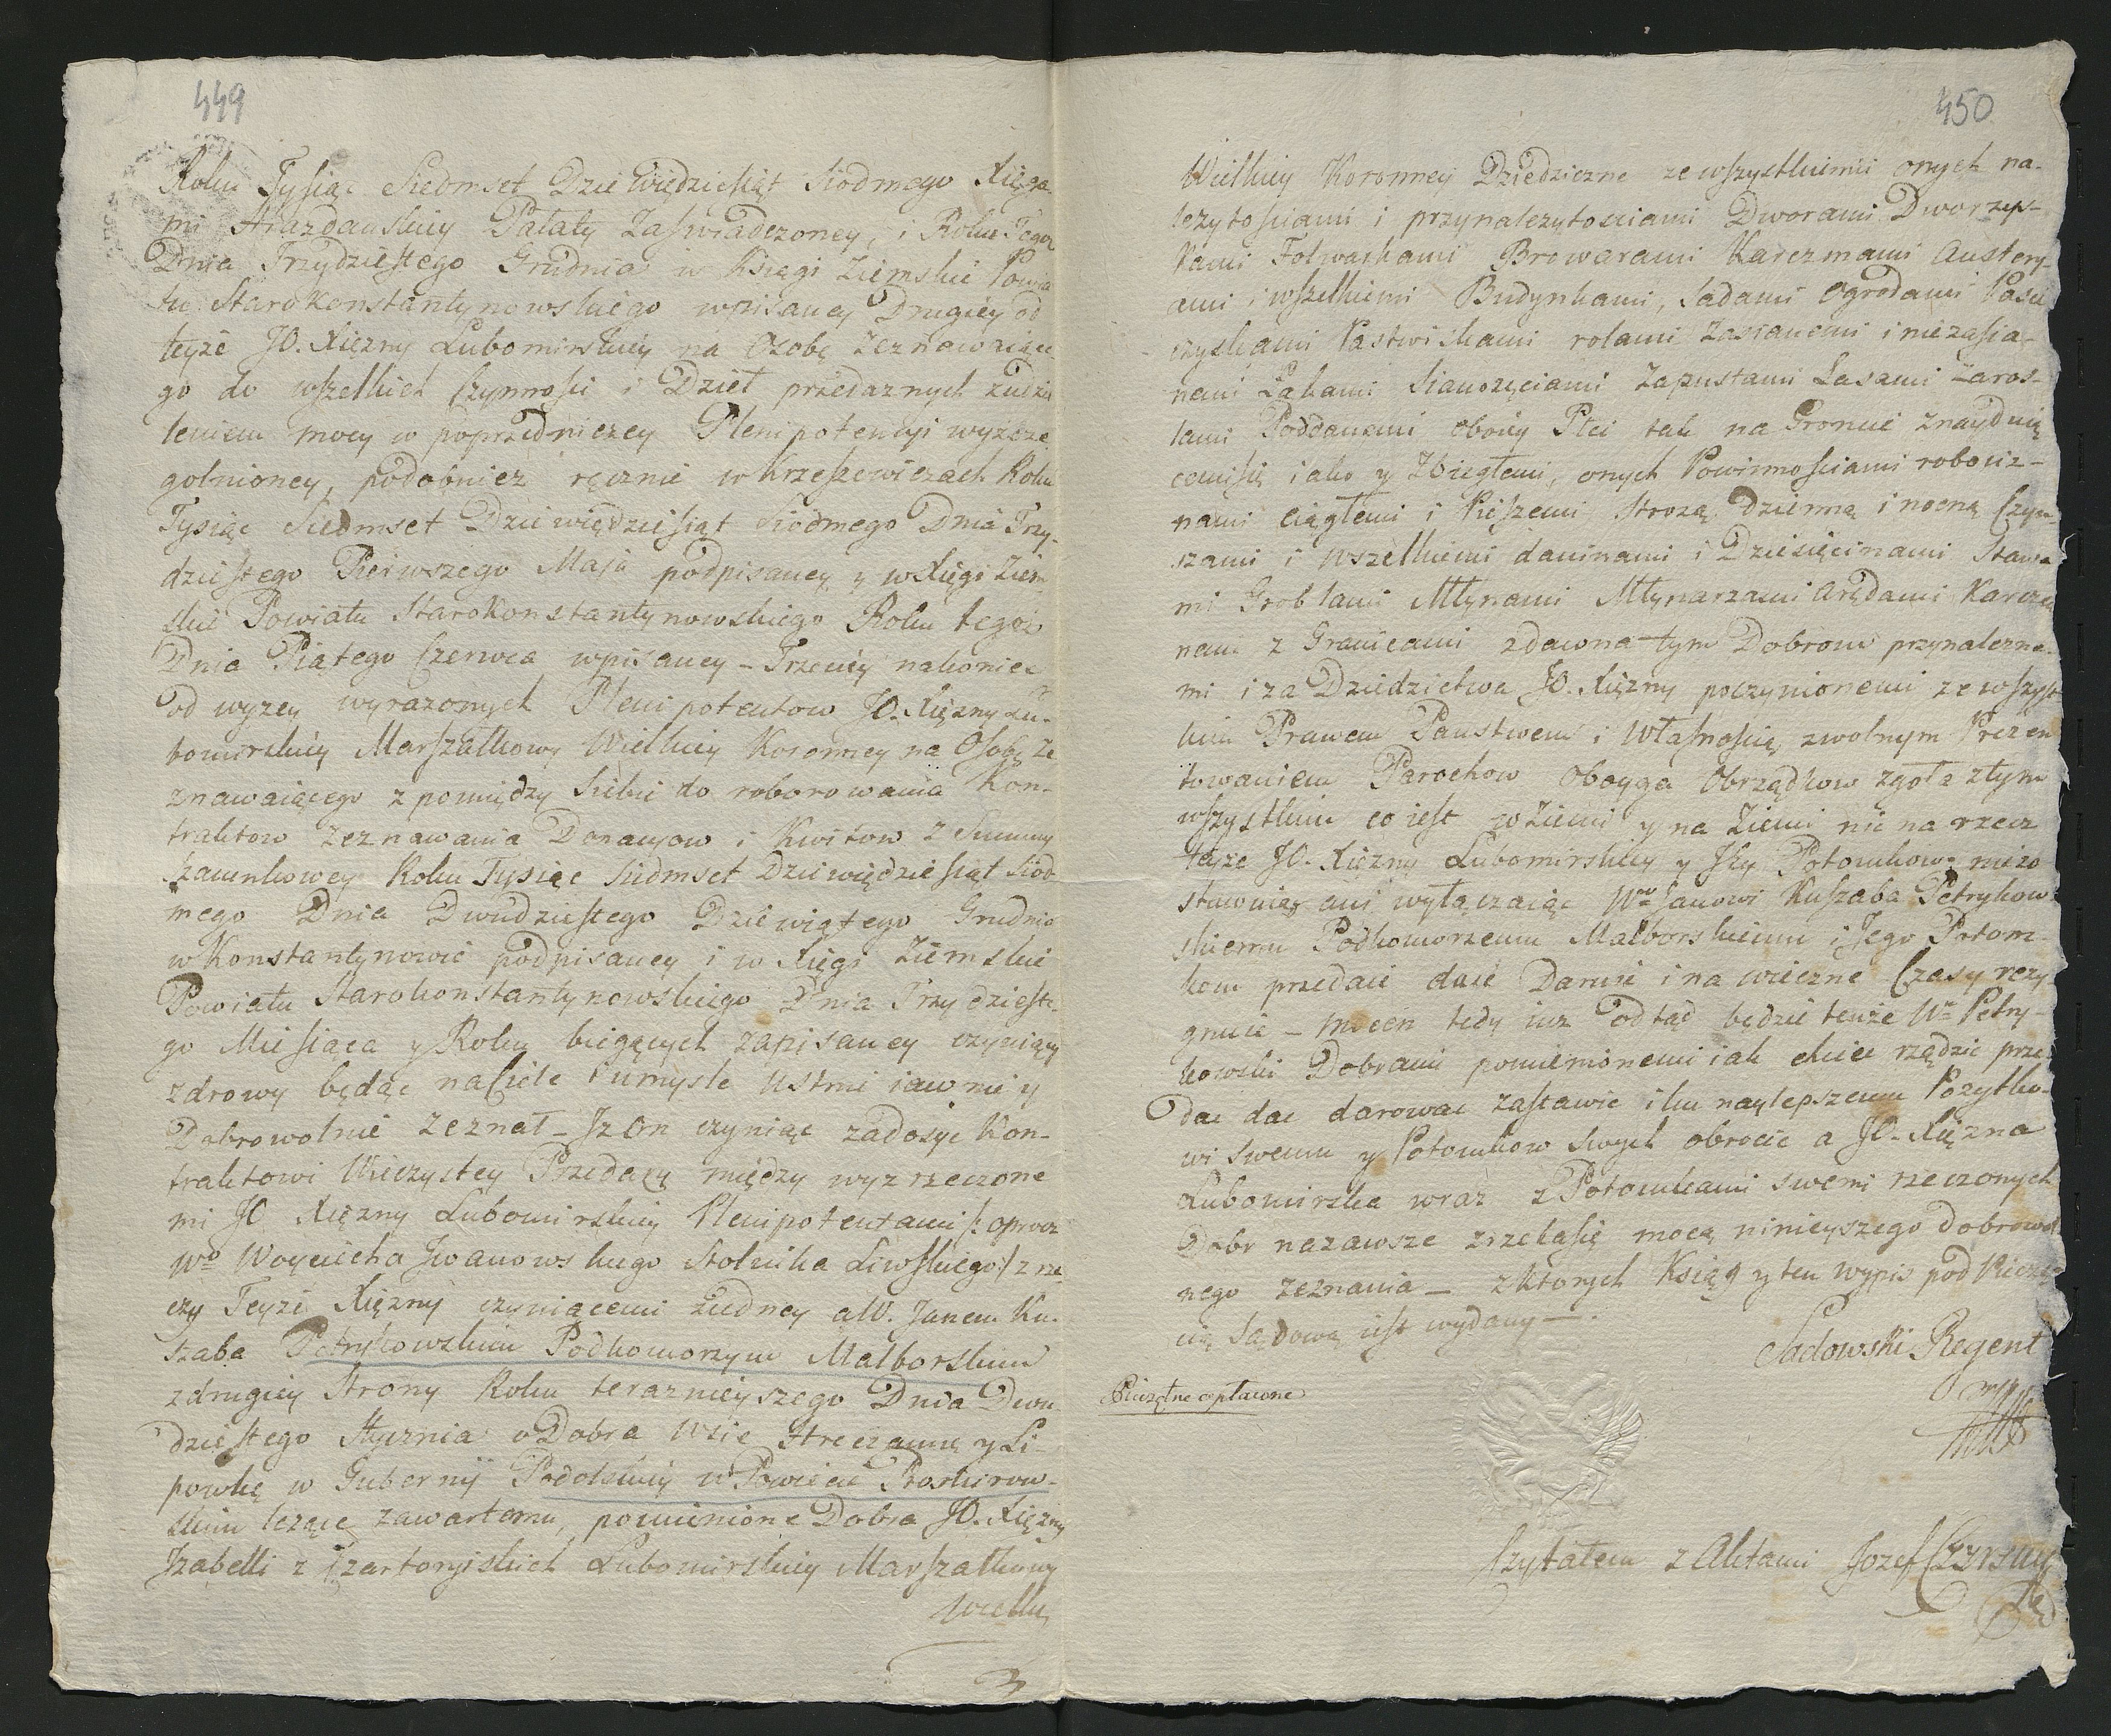 449
Roku Tysiąc Siedmset Dziewiędziesiąt Siodmego Xięga
mi Grazdańskiey Pałaty Zaswiadczoney, i Roku Tegoż
Dnia Trzydziestego Grudnia w Księgi Ziemskie Powia
tu Starokonstantynowskiego wpisaney Drugiey od
teyże JO. Xiężny Lubomirskiey na Osobę Zeznawaiące
go do wszelkich Czynnosci i Dzieł przedaznych zudzie
leniem mocy w poprzedniczey Plenipotencyi wyszcze
golnioney, podobnież ręcznie w Krzeszowiczach Roku
Tysiąc Siedmset Dziewiędziesiąt Siodmego Dnia Trzy-
dziestego Pierwszego Maja podpisaney y w Xięgi Ziem
skie Powiatu Starokonstantynowskiego Roku tegoż
Dnia Piątego Czerwca wpisaney – Trzeciey nakoniec
od wyzey wyrazonych Plenipotentow JO. Xiężny Lu-
bomirskiey Marszałkowy Wielkiey Koronney na Osobę Ze
znawaiącego z pomiędzy Siebie do roborowania Kon-
traktow zeznawania Donacyow i Kwitow z Summy
szacunkowey Roku Tysiąc Siedmset Dziewiędziesiąt Siod
mego Dnia Dwudziestego Dziewiątego Grudnia
w Konstantynowie podpisaney i w Xięgi Ziemskie
Powiatu Starokonstantynowskiego Dnia Trzydzieste
go Miesiąca y Roku biegących zapisaney czyniący
zdrowy będąc na Ciele i umysle Ustnie iawnie y
Dobrowolnie zeznał – Iz On czyniąc zadosyć Kon-
traktowi Wieczystey Przedaży między wyz rzeczone
mi JO Xiężny Lubomirskiey Plenipotentami /: oprocz
Wo Woyciecha Iwanowskiego Stolnika Liwskiego:/ z rze
czy Teyże Xiężny czyniącemi z iedney a W. Janem Ku-
szaba Petrykowskim Podkomorzym Malborskim
z drugiey Strony Roku teraznieyszego Dnia Dwu
dziestego Stycznia o Dobra Wsie Streczanę y Li-
powkę w Gubernij Podolskiey w Powiecie Proskurow-
skim leżące zawartemu, pomienione Dobra JO. Xiężny
Izabelli z Czartoryiskich Lubomirskiey Marszałkowy
Wielkiey
450
Wielkiey Koronney Dziedziczne ze wszystkiemi onych na-
leżytosciami i przynależytosciami Dworami Dworzys-
kami Folwarkami Browarami Karczmami Austery-
ami i wszelkiemi Budynkami, Sadami Ogrodami Pasie
czyskami Pastwiskami rolami Zasianemi i niezasia-
nemi Łąkami Sianozęciami Zapustami Lasami Zaros-
lami Poddanemi oboiey Płci tak na Groncie znayduią
cemisię iako y Zbiegłemi, onych Powinnosciami robociz-
nami ciągłemi i Pieszemi Strożą dzienną i nocną Czyn-
szami i wszelkiemi daninami i Dziesięcinami Stawa
mi Groblami Młynami Młynarzami Arędami Karczem
nemi z Granicami zdawna tym Dobrom przynalezne-
mi i za Dziedzictwa JO. Xiężny poczynionemi ze wszyst
kim Prawem Państwem i Własnoscią z wolnym Prezen
towaniem Parochow Oboyga Obrządkow zgoła z tym
wszystkim co iest w Ziemi y na Ziemi nic na rzecz
teyże JO. Xiężny Lubomirskiey y Jey Potomkow niezo
stawuiąc ani wyłączaiąc Wmu Janowi Kuszaba Petrykow
skiemu Podkomorzemu Malborskiemu i Jego Potom-
kom przedaie daie Daruie i na wieczne Czasy rezy
gnuie – mocen tedy iuz odtąd będzie tenże Wny Petry-
kowski Dobrami pomienionemi iak chciec rządzic prze-
dac dac darowac zastawic i ku naylepszemu Pozytko-
wi swemu y Potomkow swych obrocic a JO. Xiężna
Lubomirska wraz z Potomkami swemi rzeczonych
Dobr nazawsze zrzekasię mocą ninieyszego dobrowol
nego zeznania – z ktorych Ksiąg y ten wypis pod Pieczę
cią Sądową iest wydany –.
Sadowski Regent
Pieczętne opłacone
Czytałem z Aktami Jozef